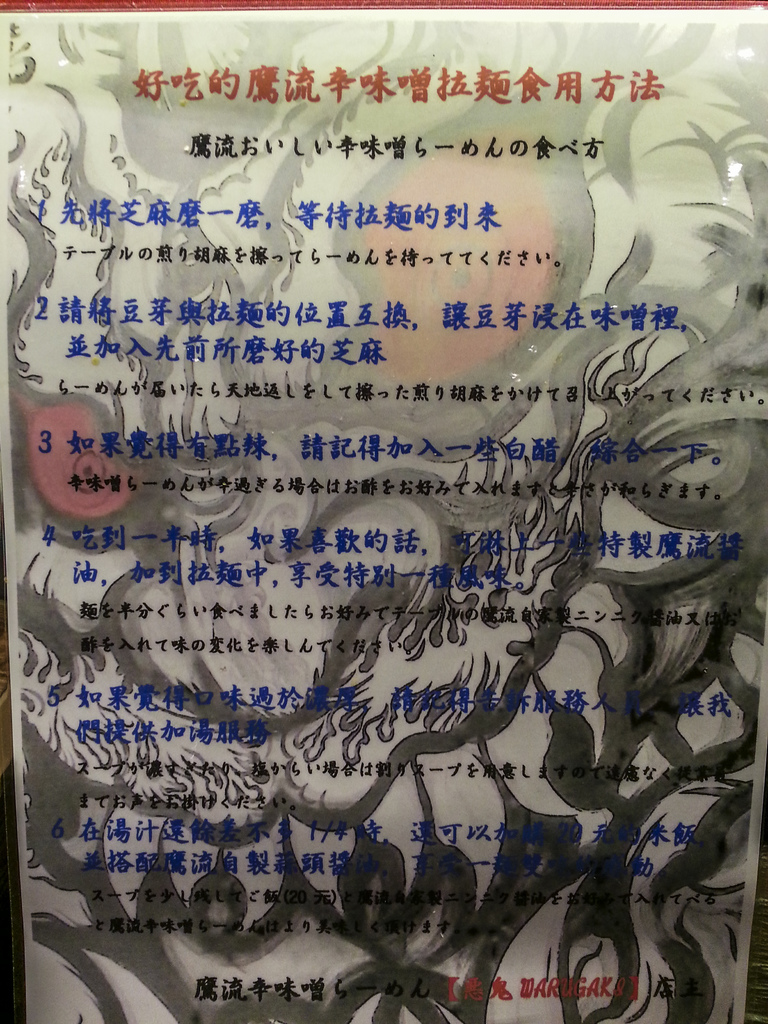 好吃的鷹流辛味噌拉麵食用方法
鷹流おいしい辛味噌らーめんの食べ方
1 先將芝麻磨一磨，等待拉麵的到來
テーブルの煎り胡麻を擦ってらーめんを待っててください。
2 請將豆芽與拉麵的位置互換，讓豆芽浸在味噌裡，
並加入先前所磨好的芝麻
らーめんが届いたら天地返しをして擦った煎り胡麻をかけて召し上がってください。
3 如果覺得有點辣，請記得加入一些白醋 綜合一下。
辛味噌らーめんが辛過ぎる場合はお酢をお好みで入れますと辛さが和らぎます。
4 吃到一半時，如果喜歡的話，可淋上一些特製鷹流醬
油，加到拉麵中，享受特別一種風味。
麺を半分ぐらい食べましたらお好みでテーブルの鷹流自家製ニンニク醤油又はお
酢を入れて味の変化を楽しんでください
5 如果覺得口味過於濃厚，請記得告訴服務人員 讓我
們提供加湯服務
スープが濃すぎたり、塩からい場合は割りスープを用意しますので遠慮なく従業員
までお声をお掛けください。
6 在湯汁還餘差不多 1/4 時，還可以加購 20 元的米飯，
並搭配鷹流自製蒜頭醬油，享受一麵雙味的感動。
スープを少し残してご飯(20 元)と鷹流自家製ニンニク醤油をお好みで入れてべる
と鷹流辛味噌らーめんはより美味しく頂けます。
鷹流辛味噌らーめん【悪鬼 WARUGAKI】店主